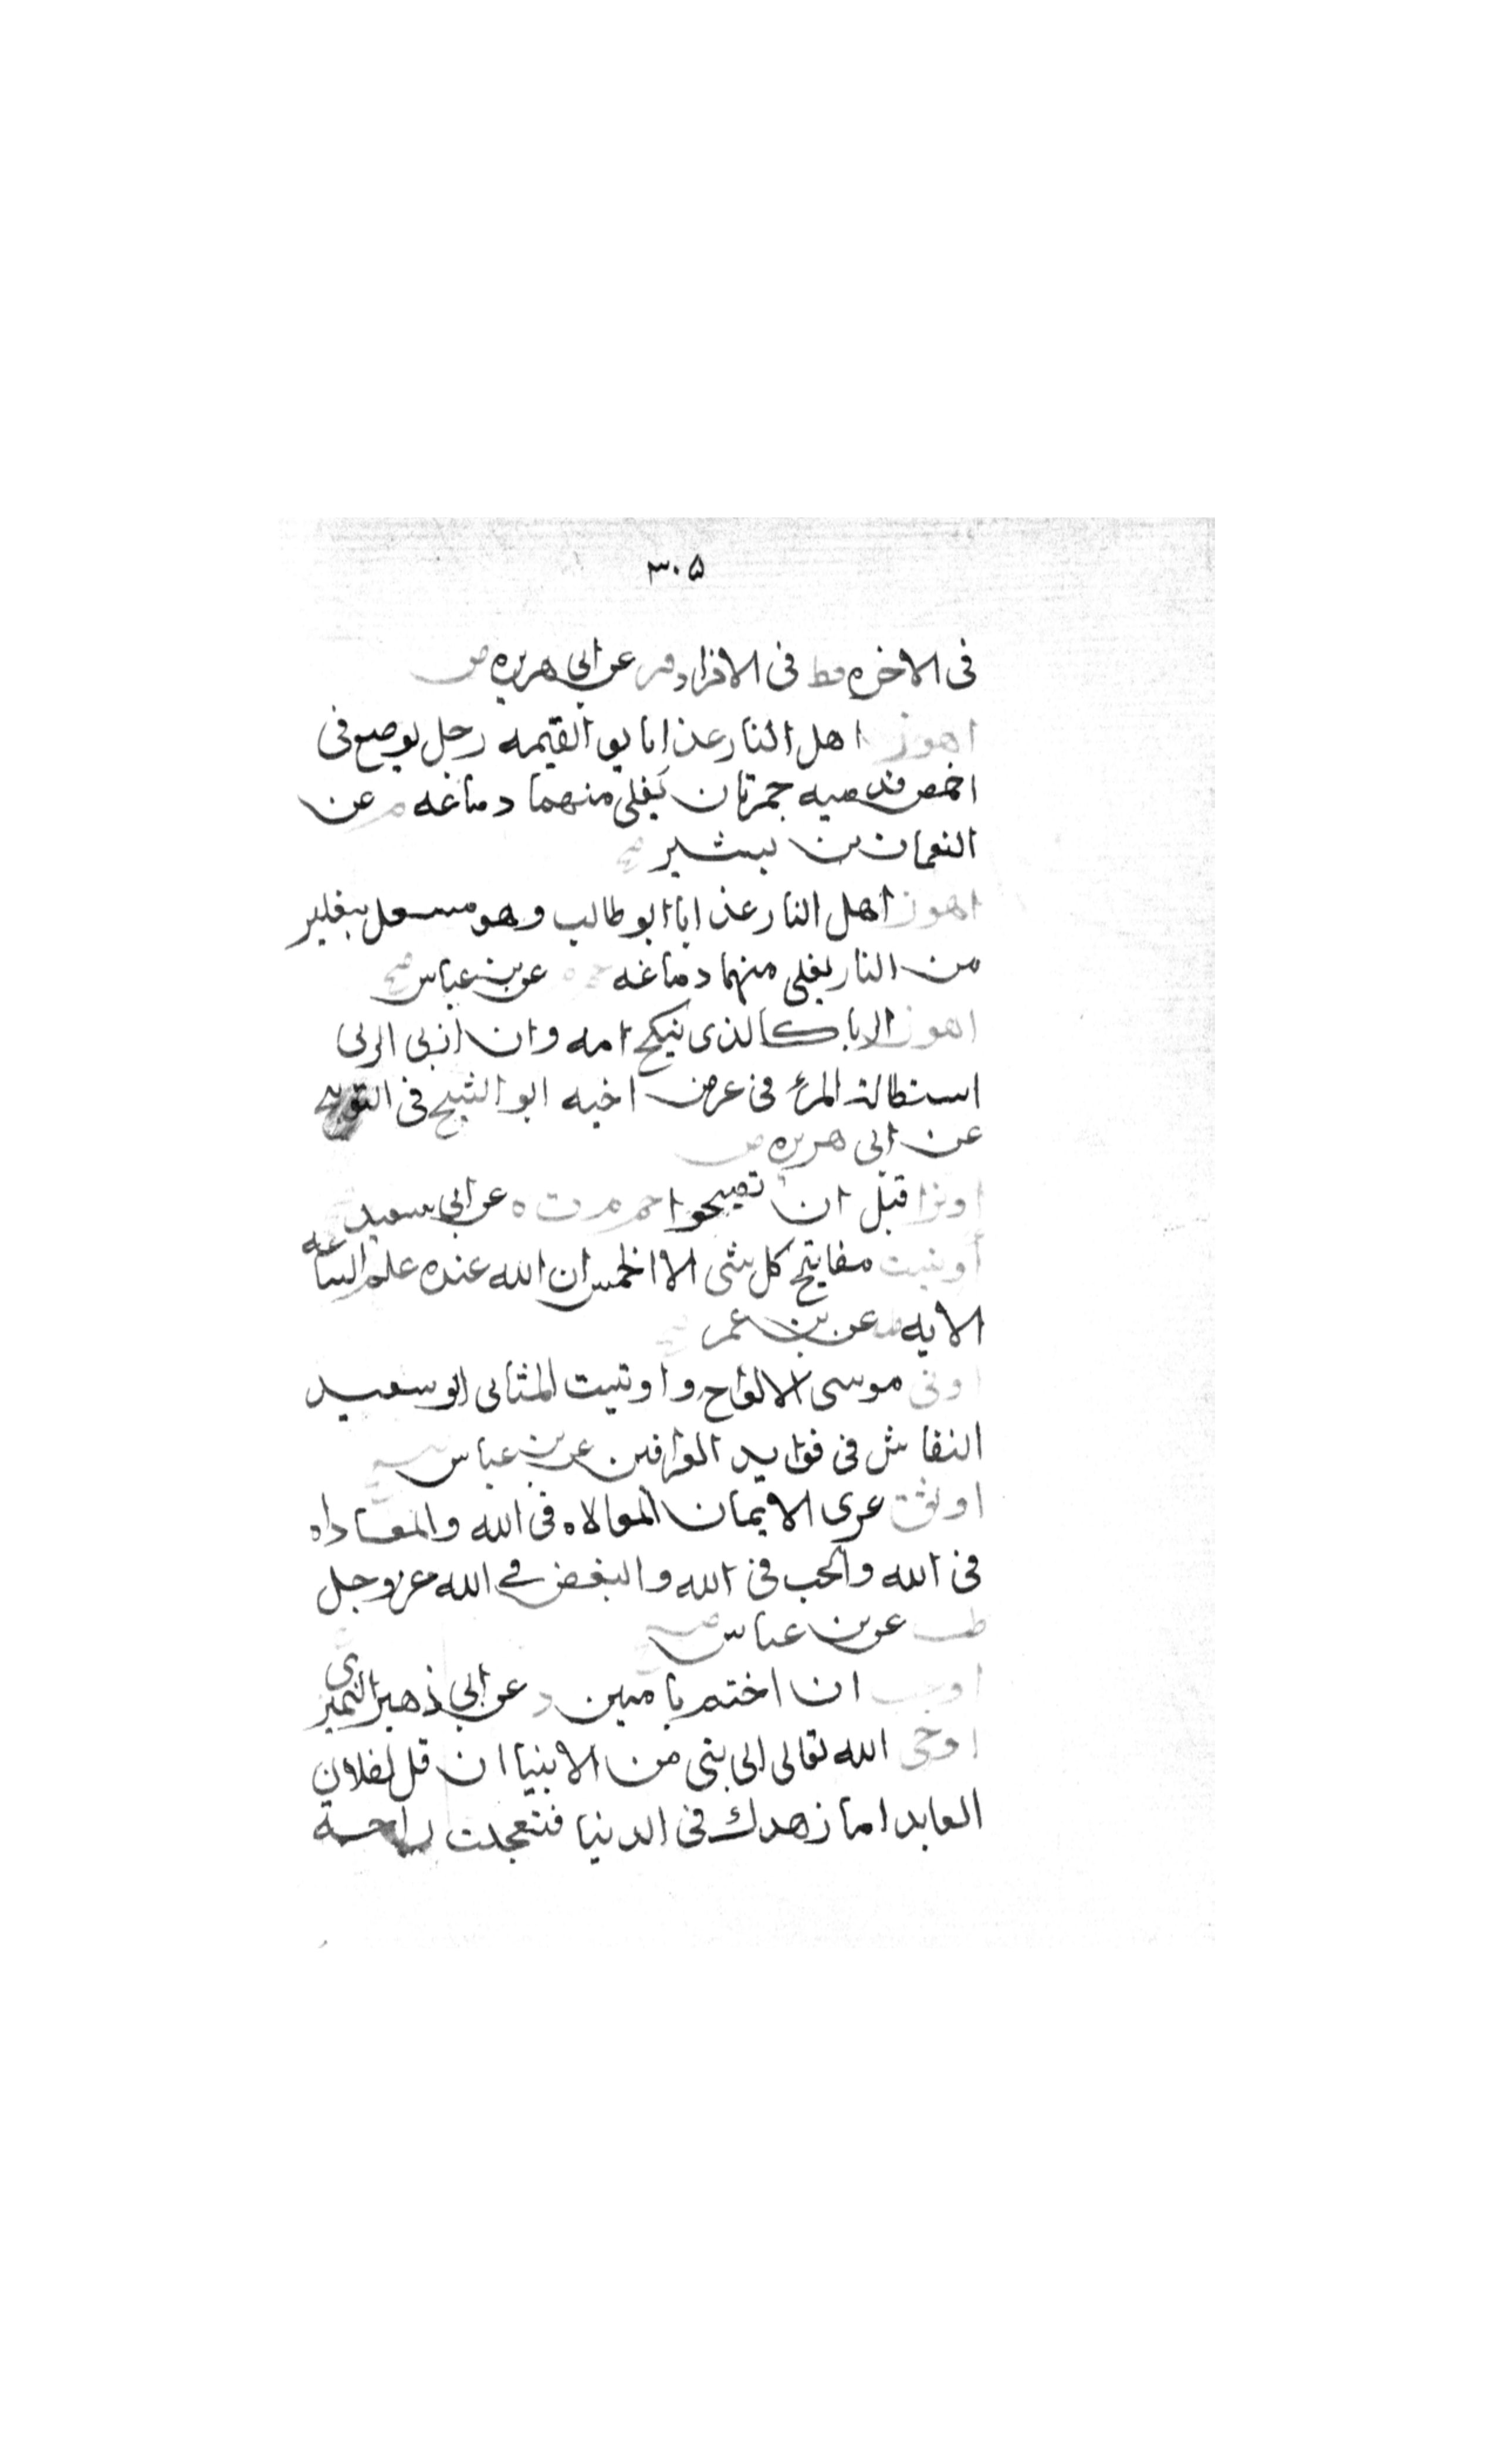 ٣٠٥
فى الاخره قط فى الافراد فر عن ابى هريره ض
اهون اهل النار عذابا يوم القيمه رجل يوضع فى
اخمص قدميه جمرتان يغلى منهما دماغه م عن
النعمان بن بشير صح
اهون اهل النار عذابا ابو طالب وهو منتعل بنعلين
من النار يغلى منهما دماغه حم م عن بن عباس صح
اهون الربا كالذى ينكح امه وان اربى الربى
استطالة المرء فى عرض اخيه ابو الشيخ فى التوبيخ
عن ابى هريره ض
اوتروا قبل ان تصبحوا حم م ت ه عن ابى سعيد
أوتيت مفاتيح كل شى الا الخمس ان الله عنده علم الساعه
الايه طب عن بن عمر صح
اوتى موسى الالواح واوتيت المثانى ابو سعيد
النقاش فى فوايد العراقين عن بن عباس
اوثق عرى الايمان الموالاه فى الله والمعاداه
فى الله والحب فى الله والبغض فى الله عز وجل
طب عن بن عباس
اوجب ان اختم بامين د عن ابى زهير النميرى
اوحى الله تعالى الى نبى من الانبيا ان قل لفلان
العابد اما زهدك فى الدنيا فتعجلت راحة